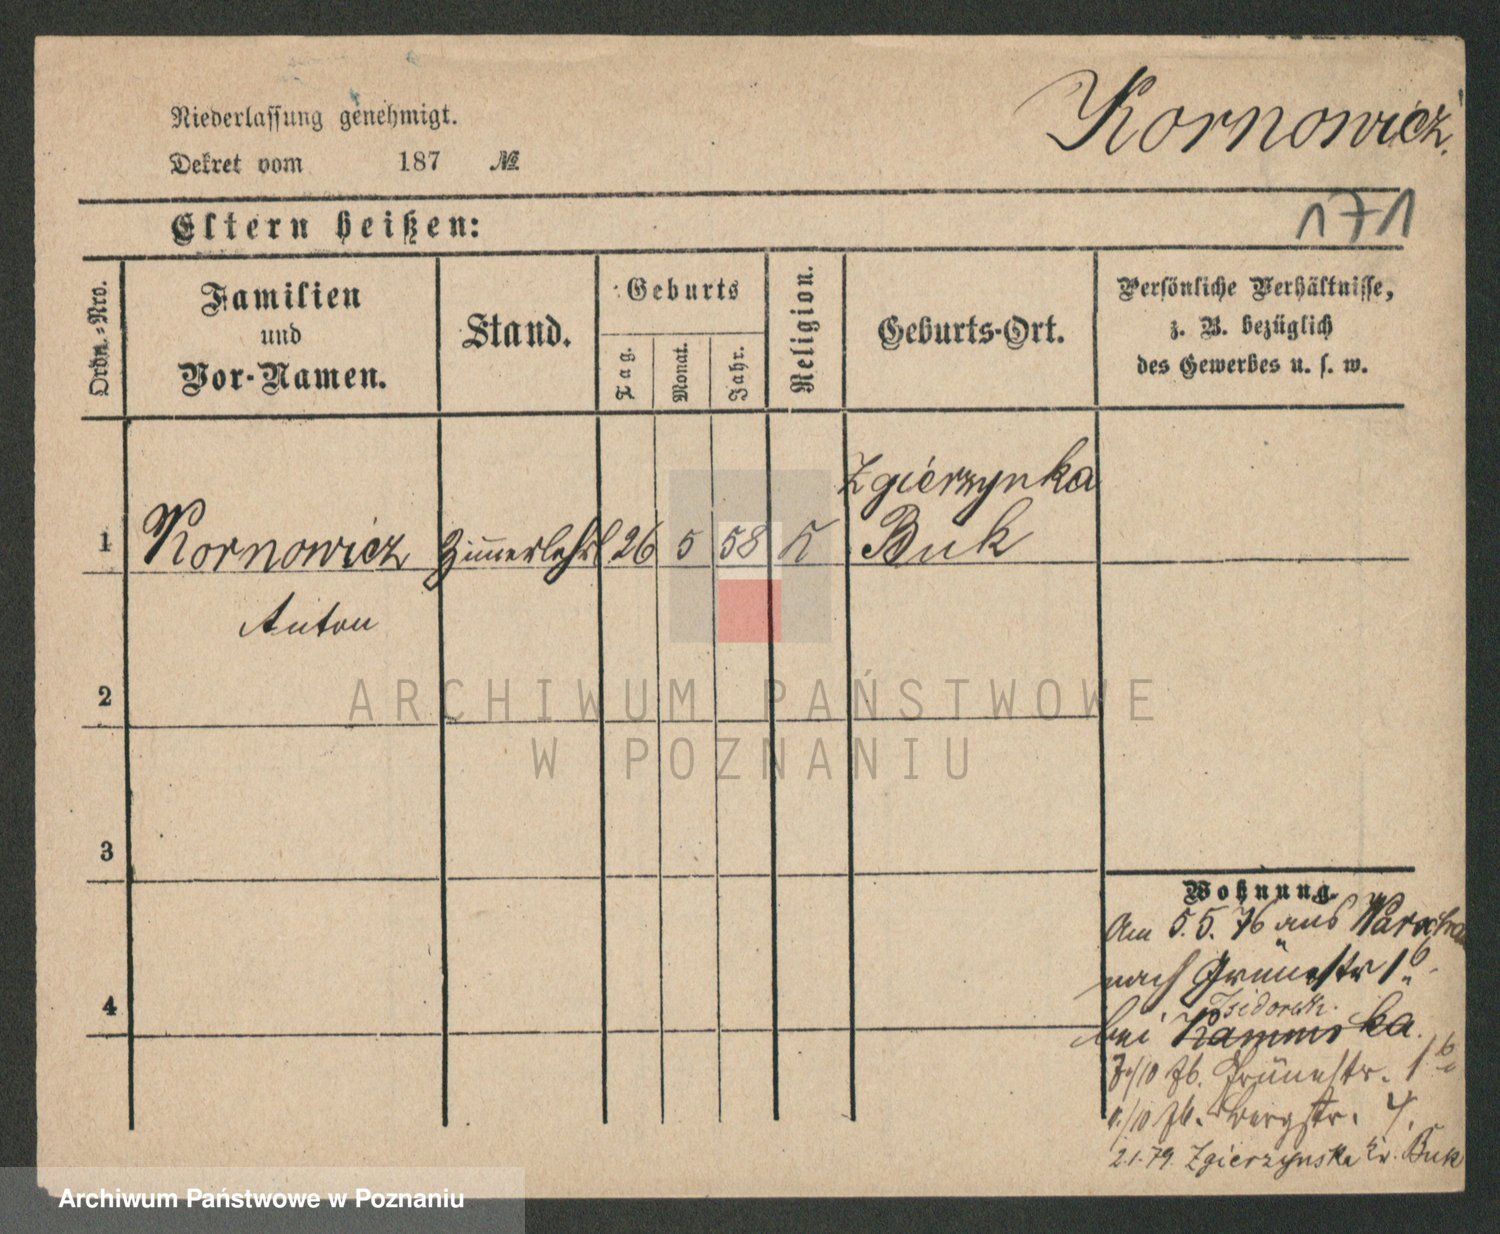 Kornowicz.
Niederlassung genehmigt.
Dekret vom 187 №
171
Eltern heißen:
Ordn.-Nro.
Familien und Vor-Namen.
Stand.
Geburts
Tag.
Monat.
Jahr.
Religion.
Geburts-Ort.
Persönliche Verhältnisse,
z. B. bezüglich
des Gewerbes u. s. w.
Zgierzynka
1 Kornowicz Zimerlehrl 26 5 58 K Buk
Anton
2
ARCHIWUM PAŃSTWOWE
W POZNANIU
3
Wohnung.
Am 5.5.76 aus
nach Grünestr 1b.
4
Isidorek.
bei Kaminska.
/10 76. Grünestr. 1b
/10 76. Bergstr. 4.
2.1.79. Zgierzynska Kr. Buk
Archiwum Państwowe w Poznaniu